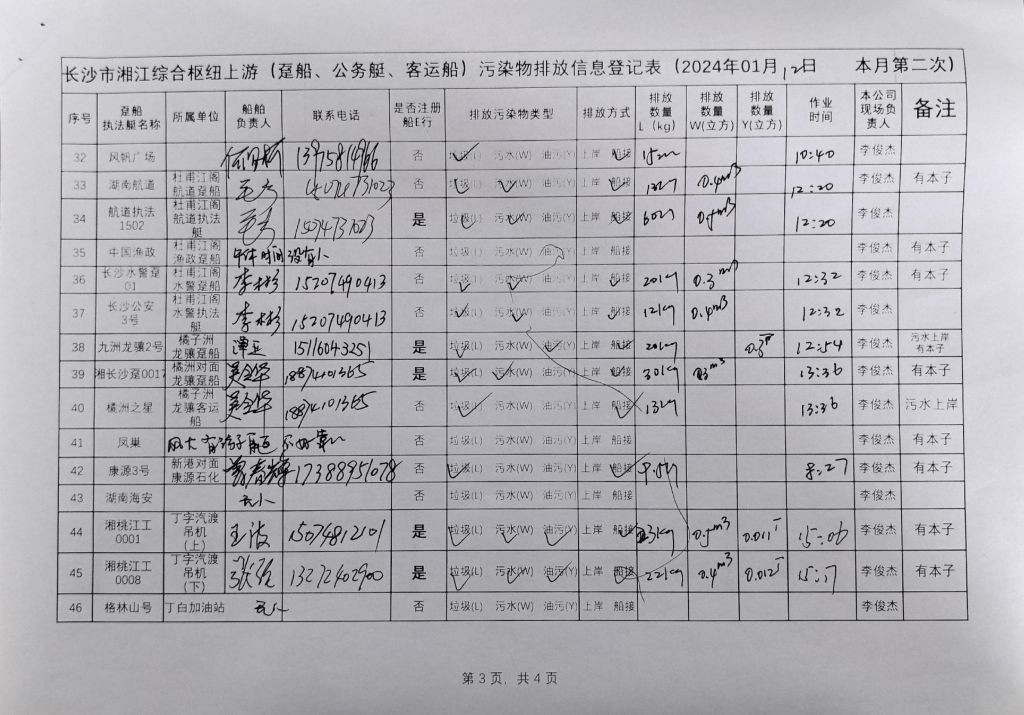 长沙市湘江综合枢纽上游（趸船、公务艇、客运船）污染物排放信息登记表（2024年01月12日 本月第二次）
序号 趸船执法艇名称 所属单位 船舶负责人 联系电话 是否注册船E行 排放污染物类型 排放方式 排放数量L（kg） 排放数量W(立方) 排放数量Y(立方) 作业时间 本公司现场负责人 备注
32 风帆广场 否 垃圾(L) 污水(W) 油污(Y) 上岸 船接 10:40 李俊杰
33 湖南航道 杜甫江阁航道趸船 否 垃圾(L) 污水(W) 油污(Y) 上岸 船接 0.4m3 12:20 李俊杰 有本子
34 航道执法1502 杜甫江阁航道执法艇 15074731023 是 垃圾(L) 污水(W) 油污(Y) 上岸 船接 12:20 李俊杰
35 中国渔政 杜甫江阁渔政趸船 没有人 否 垃圾(L) 污水(W) 油污(Y) 上岸 船接 李俊杰 有本子
36 长沙水警趸01 杜甫江阁水警趸船 李彬彬 15207490413 否 垃圾(L) 污水(W) 油污(Y) 上岸 船接 20kg 0.3m3 12:32 李俊杰 有本子
37 长沙公安3号 杜甫江阁水警执法艇 李彬彬 15207490413 否 垃圾(L) 污水(W) 油污(Y) 上岸 船接 12kg 0.4m3 12:32 李俊杰
38 九洲龙骧2号 橘子洲龙骧趸船 15116043251 是 垃圾(L) 污水(W) 油污(Y) 上岸 船接 20kg 12:54 李俊杰 污水上岸有本子
39 湘长沙趸0017 橘洲对面龙骧趸船 18874101365 是 垃圾(L) 污水(W) 油污(Y) 上岸 船接 30kg 13:36 李俊杰 有本子
40 橘洲之星 橘子洲龙骧客运船 18874101365 否 垃圾(L) 污水(W) 油污(Y) 上岸 船接 13kg 13:36 李俊杰 污水上岸
41 凤巢 否 垃圾(L) 污水(W) 油污(Y) 上岸 船接 李俊杰 有本子
42 康源3号 新港对面康源石化 17388951078 否 垃圾(L) 污水(W) 油污(Y) 上岸 船接 8:27 李俊杰 有本子
43 湖南海安 无人 否 垃圾(L) 污水(W) 油污(Y) 上岸 船接 李俊杰
44 湘桃江工0001 丁字汽渡吊机（上） 王波 15074812101 是 垃圾(L) 污水(W) 油污(Y) 上岸 船接 23kg 0.5m3 0.011T 15:06 李俊杰 有本子
45 湘桃江工0008 丁字汽渡吊机（下） 13272402900 是 垃圾(L) 污水(W) 油污(Y) 上岸 船接 22kg 0.4m3 0.012T 15:17 李俊杰 有本子
46 格林山号 丁白加油站 无人 否 垃圾(L) 污水(W) 油污(Y) 上岸 船接 李俊杰
第 3 页，共 4 页